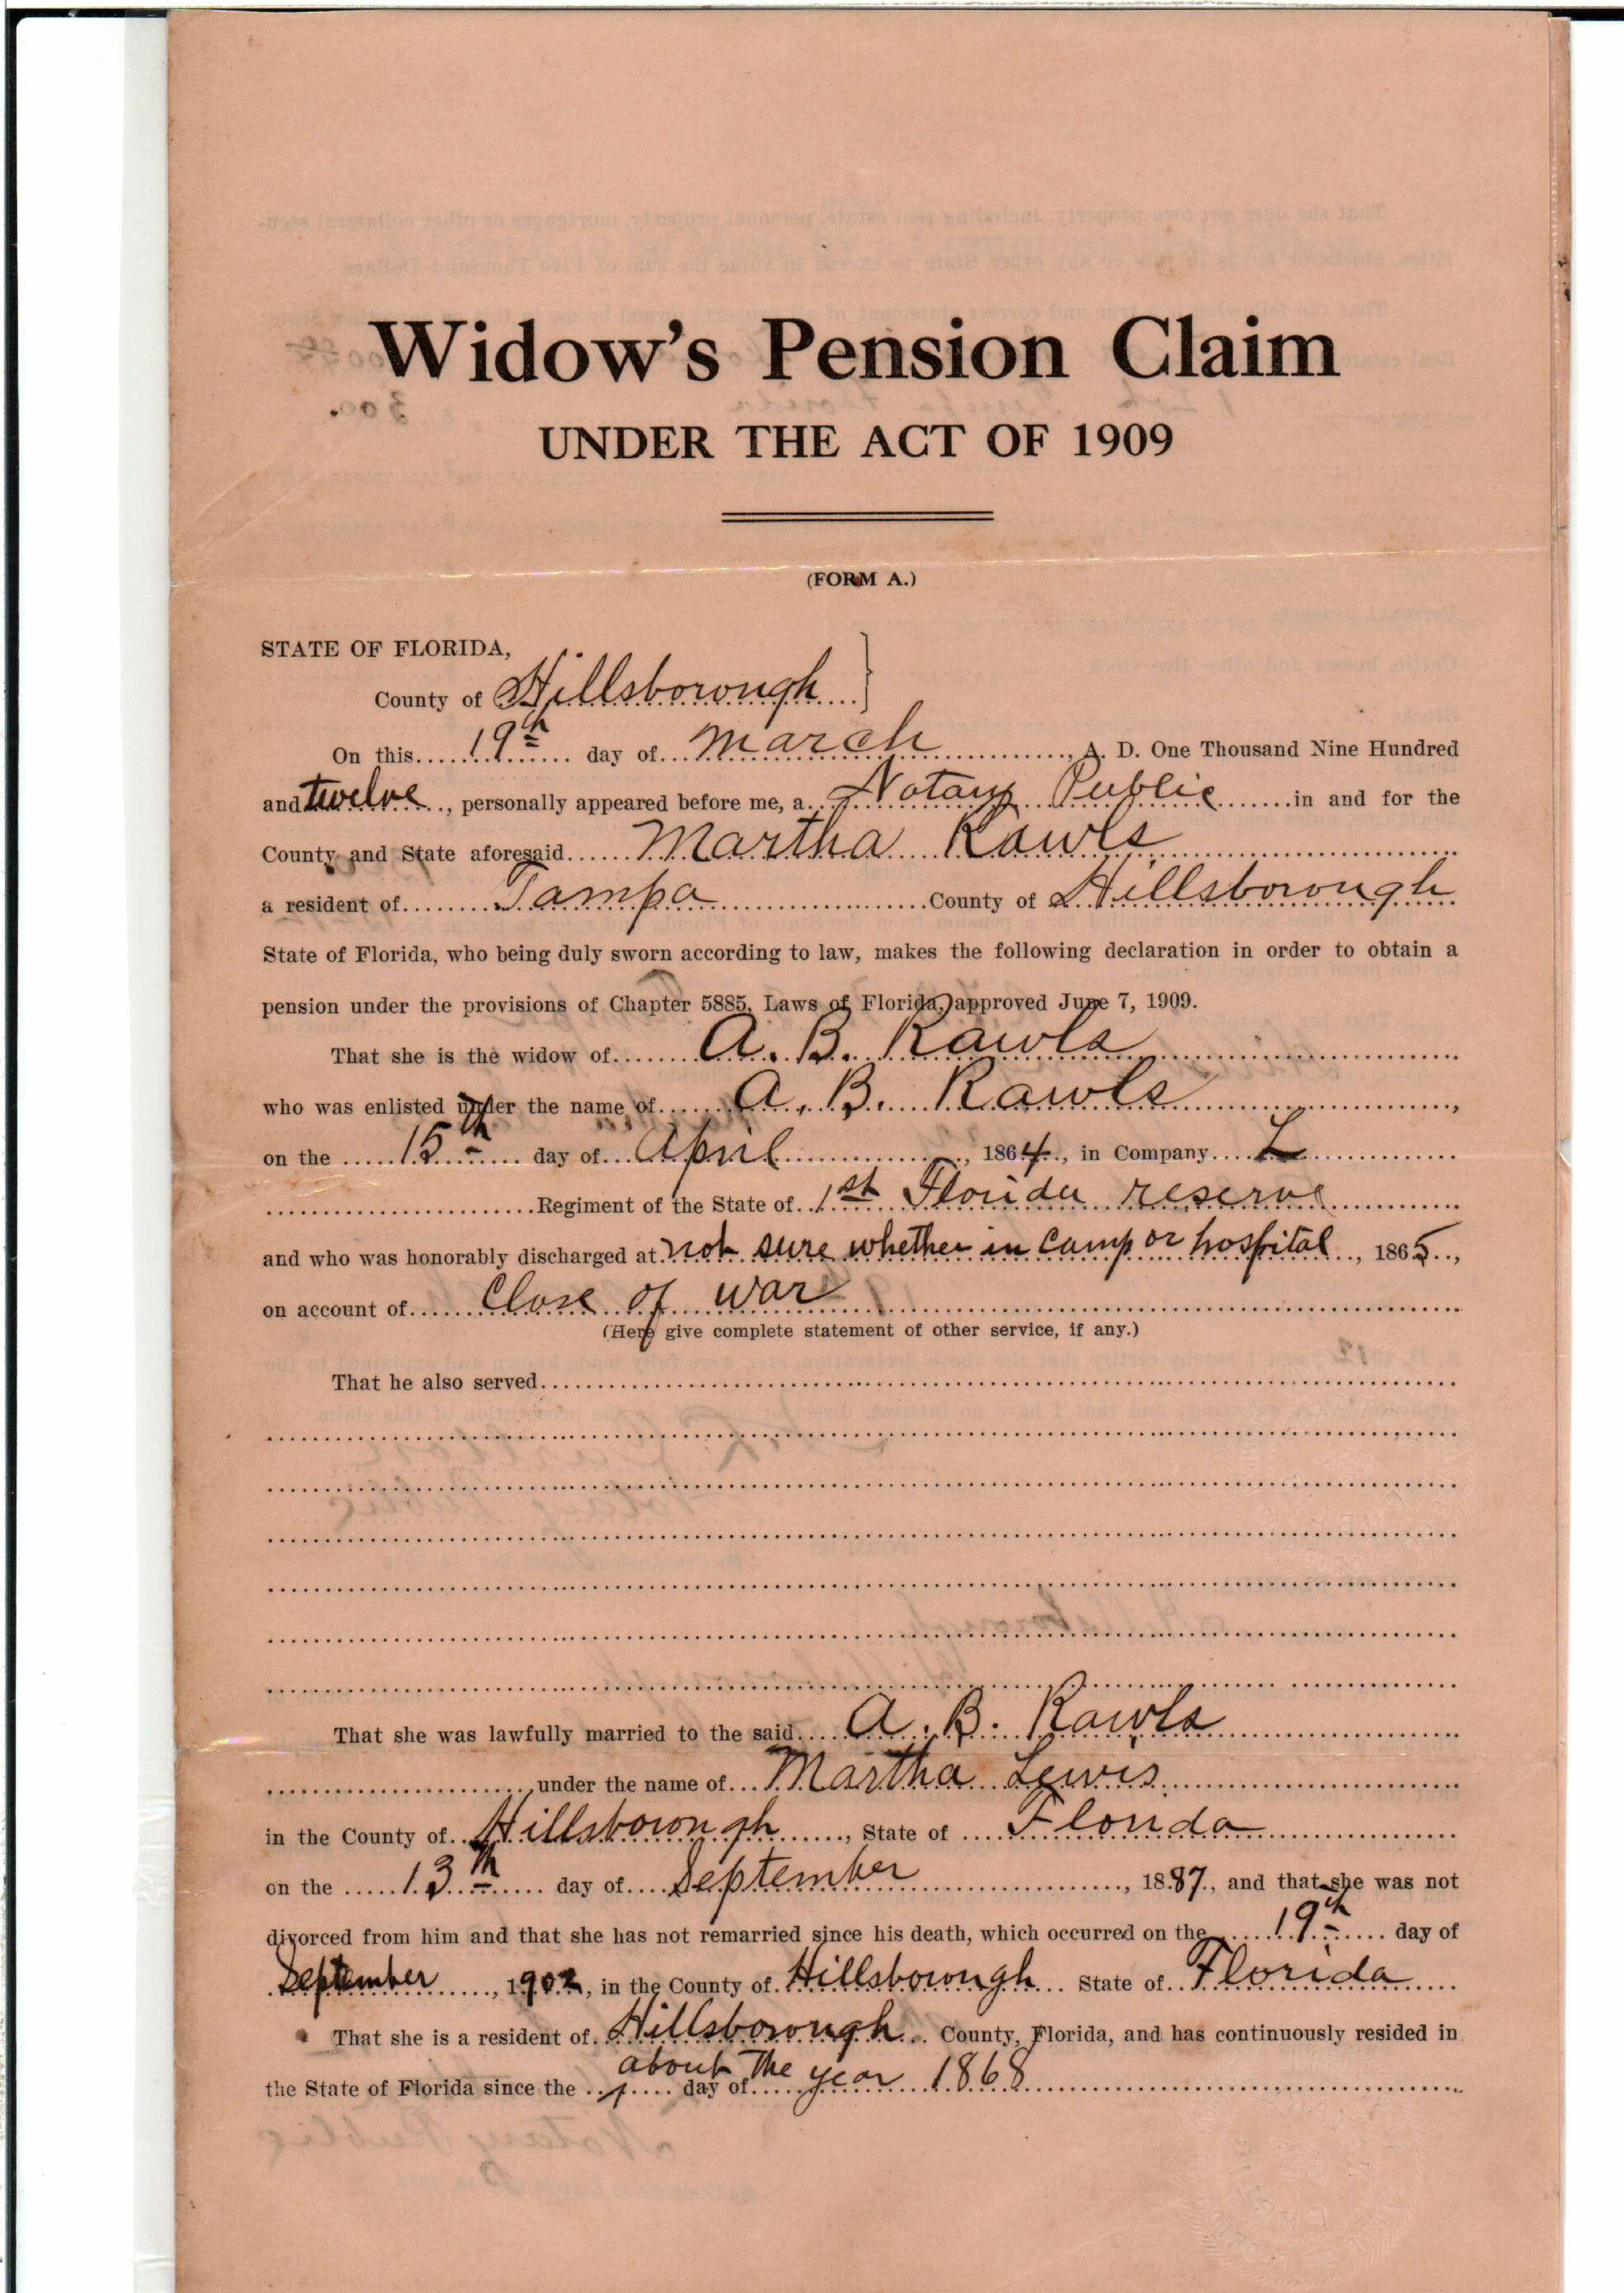 Widow's Pension Claim
UNDER THE ACT OF 1909
(FORM A.)
STATE OF FLORIDA,
County of Hillsborough }
On this 19th day of March, A. D. One Thousand Nine Hundred
and twelve, personally appeared before me, a Notary Public in and for the
County and State aforesaid Martha Rawls
a resident of Tampa County of Hillsborough
State of Florida, who being duly sworn according to law, makes the following declaration in order to obtain a
pension under the provisions of Chapter 5885, Laws of Florida, approved June 7, 1909.
That she is the widow of A. B. Rawls
who was enlisted under the name of A. B. Rawls,
on the 15th day of April, 1864, in Company L
Regiment of the State of 1st Florida reserve
and who was honorably discharged at not sure whether in camp or hospital, 1865,
on account of Close of war
(Here give complete statement of other service, if any.)
That he also served
That she was lawfully married to the said A. B. Rawls
under the name of Martha Lewis
in the County of Hillsborough, State of Florida
on the 13th day of September, 1887, and that she was not
divorced from him and that she has not remarried since his death, which occurred on the 19th day of
September, 1902, in the County of Hillsborough State of Florida
That she is a resident of Hillsborough County, Florida, and has continuously resided in
the State of Florida since the day of about the year 1868